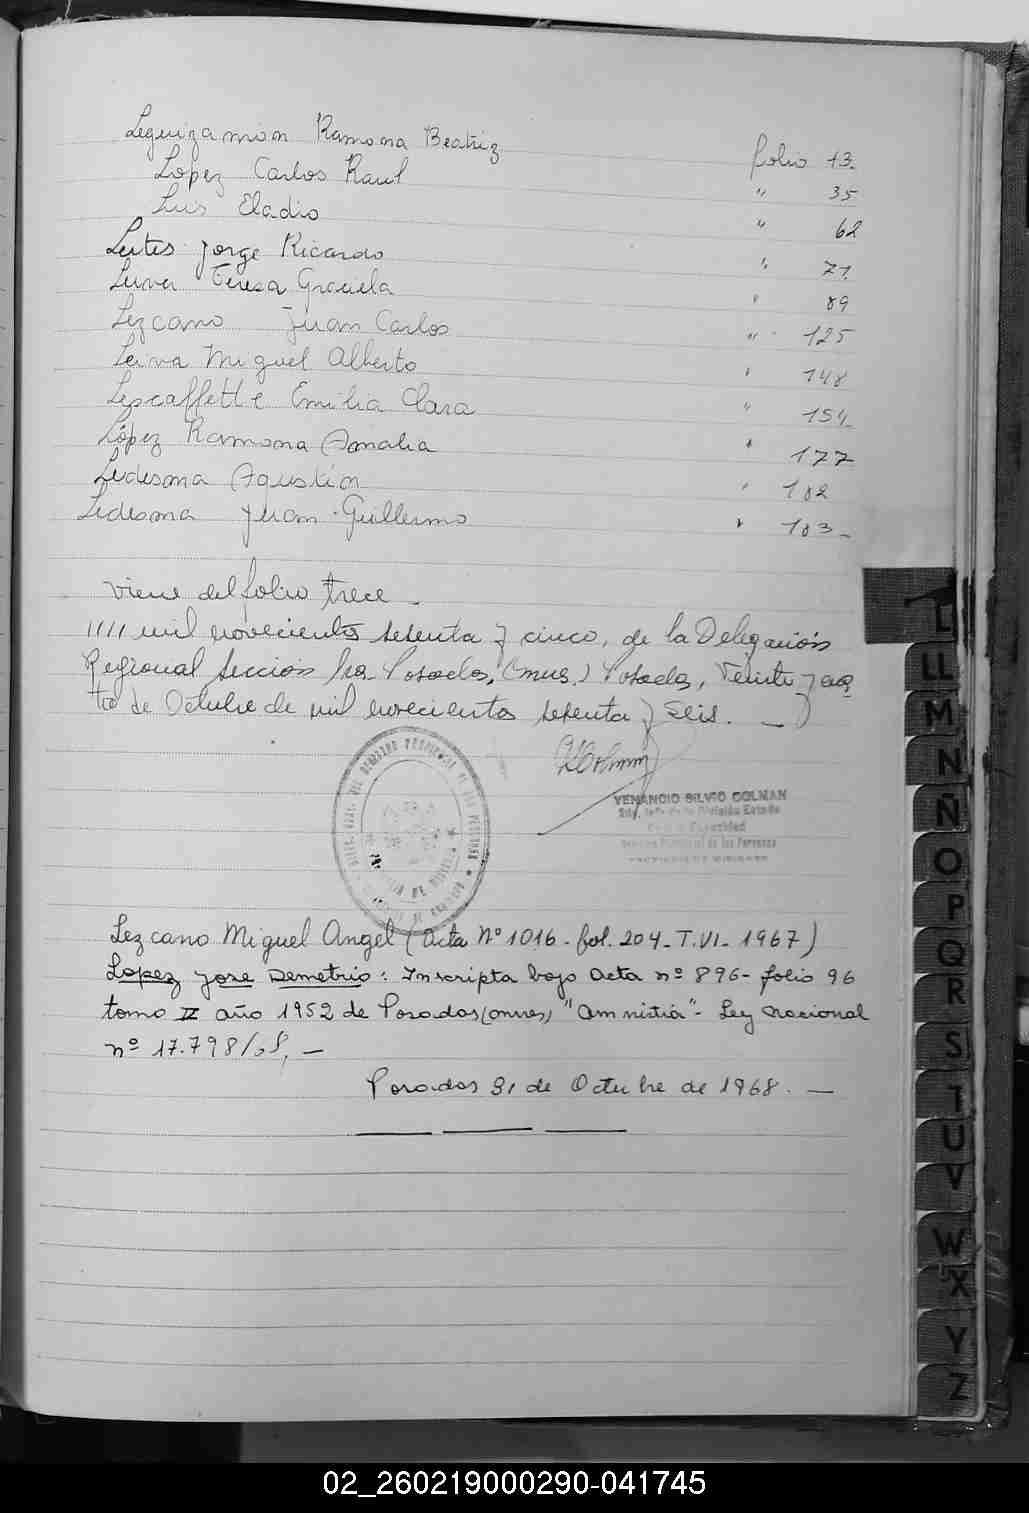 Leguizamon Ramona Beatriz folio 13.
Lopez Carlos Raul " 35
Luis Eladio " 62
Leites Jorge Ricardo " 71.
Leiva Teresa Graciela " 89
Lezcano Juan Carlos " 125
Leiva Miguel Alberto " 148
Lescaffette Emilia Clara " 154
López Ramona Amalia " 177
Ledesma Agustín " 182
Ledesma Juan Guillermo " 183-
Viene del folio trece-
//// mil novecientos setenta y cinco, de la Delegación
Regional Sección 1ra Posadas, (mnes.) Posadas, Veinte y cua
tro de Octubre de mil novecientos setenta y seis. -
VENANCIO SILVIO COLMAN
PROVINCIA DE MISIONES
Lezcano Miguel Angel (Acta Nº 1016 - fol. 204 - T.VI - 1967)
Lopez Jose Demetrio: Inscripta bajo Acta nº 896 - folio 96
tomo II año 1952 de Posadas (mnes) "Amnistia" - Ley nacional
nº 17.798/68, -
Posadas 31 de Octubre de 1968. -
L
LL
M
N
Ñ
O
P
Q
R
S
T
U
V
W
X
Y
Z
02_260219000290-041745